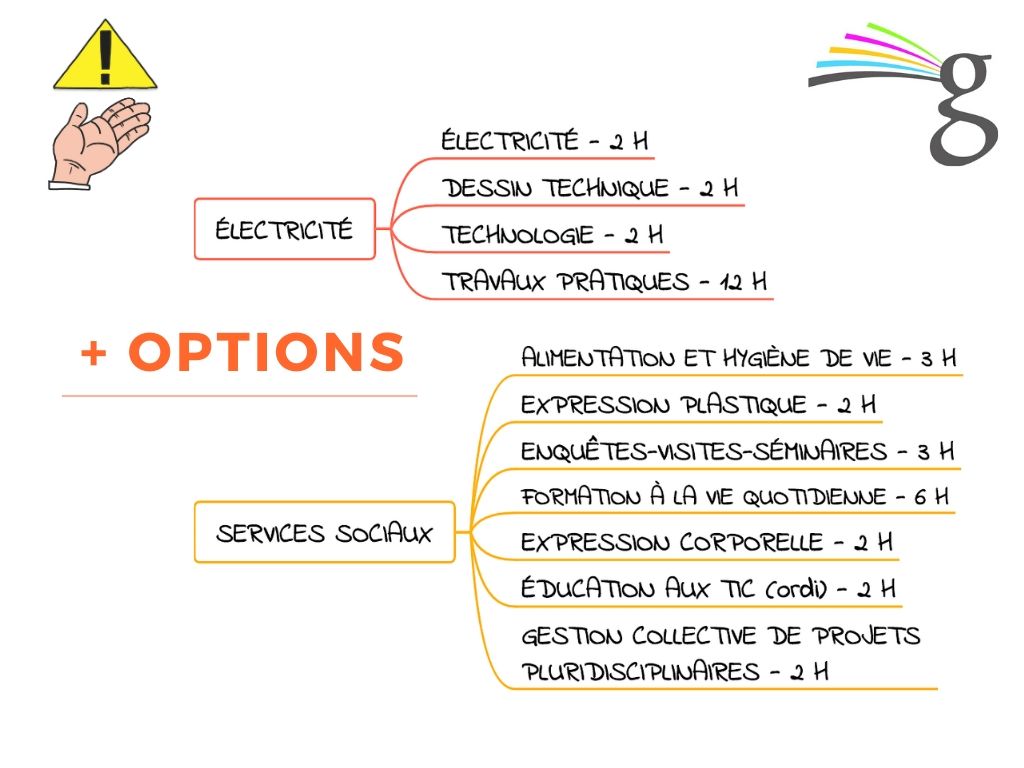 !
g
ÉLECTRICITÉ
ÉLECTRICITÉ - 2 H
DESSIN TECHNIQUE - 2 H
TECHNOLOGIE - 2 H
TRAVAUX PRATIQUES - 12 H
+ OPTIONS
SERVICES SOCIAUX
ALIMENTATION ET HYGIÈNE DE VIE - 3 H
EXPRESSION PLASTIQUE - 2 H
ENQUÊTES-VISITES-SÉMINAIRES - 3 H
FORMATION À LA VIE QUOTIDIENNE - 6 H
EXPRESSION CORPORELLE - 2 H
ÉDUCATION AUX TIC (ordi) - 2 H
GESTION COLLECTIVE DE PROJETS
PLURIDISCIPLINAIRES - 2 H